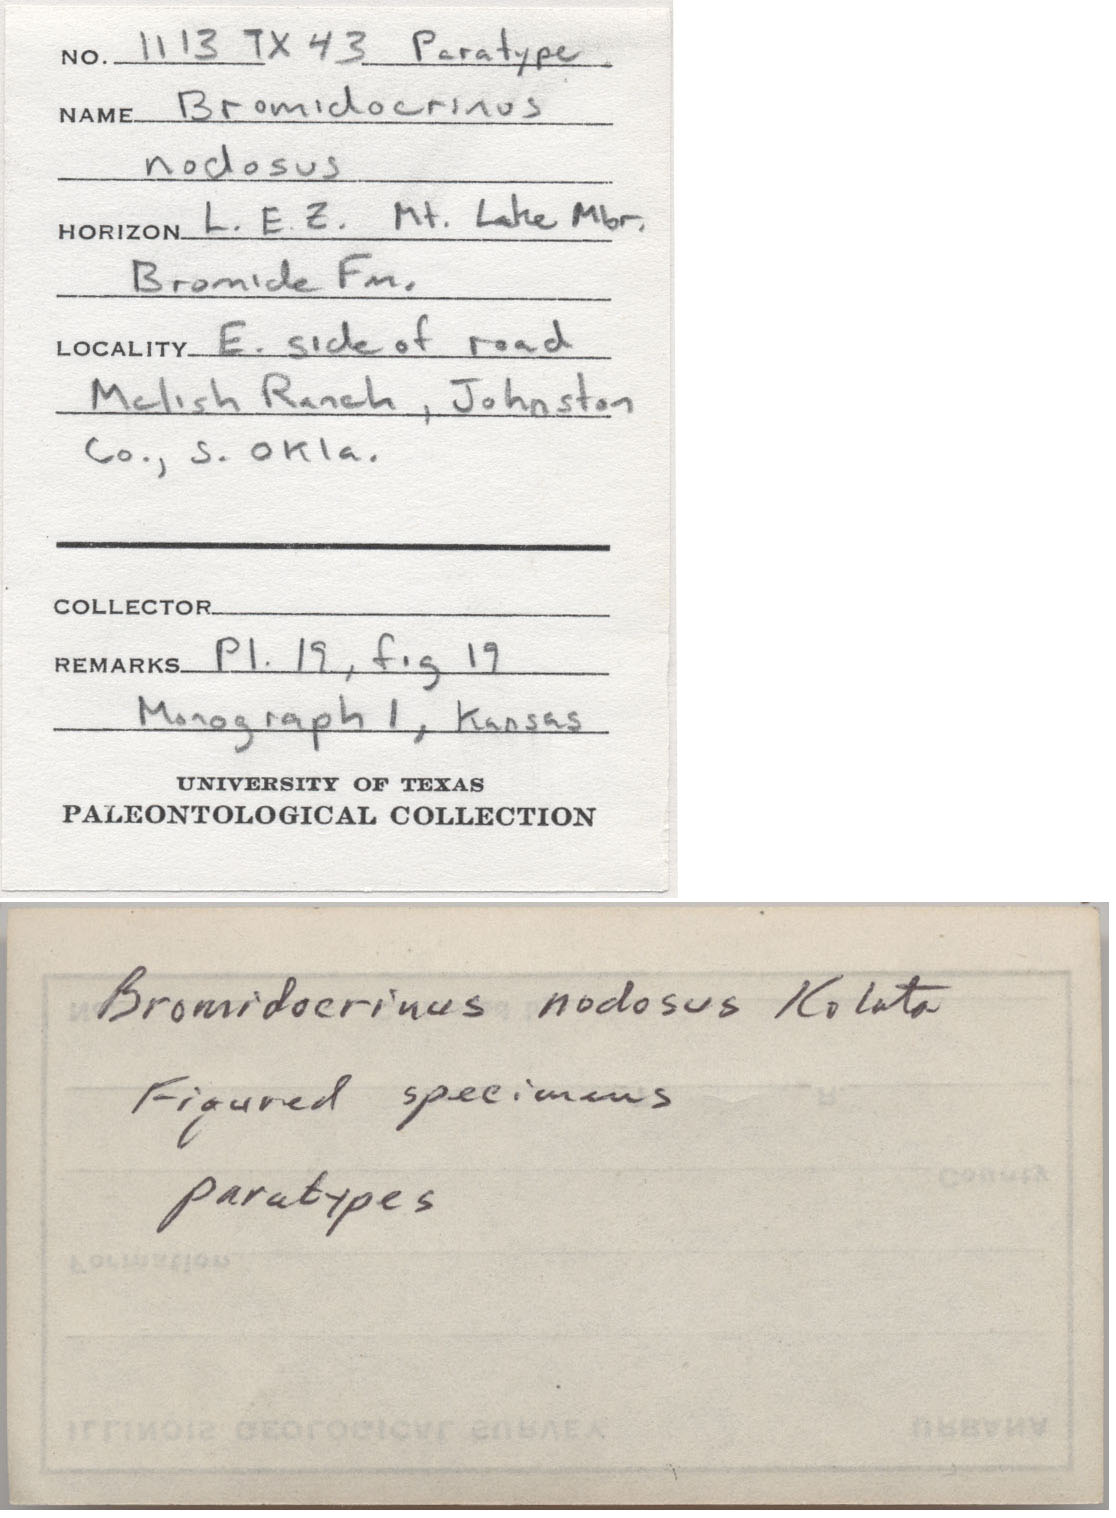 NO. 1113 TX 43 Paratype
NAME Bromidocrinus
nodosus
HORIZON L. E. Z. Mt. Lake Mbr.
Bromide Fm.
LOCALITY E. side of road
Mclish Ranch, Johnston
Co., S. Okla.
COLLECTOR
REMARKS Pl. 19, fig 19
Monograph 1, Kansas
UNIVERSITY OF TEXAS
PALEONTOLOGICAL COLLECTION
Bromidocrinus nodosus Kolata
Figured specimens
R.
paratypes
County
Formation
ILLINOIS GEOLOGICAL SURVEY URBANA